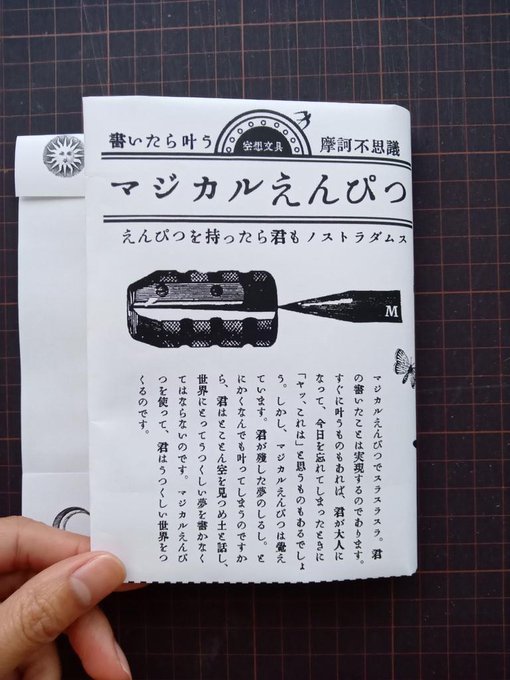 書いたら叶う
空想文具
摩訶不思議
マジカルえんぴつ
えんぴつを持ったら君もノストラダムス
M
マジカルえんぴつでスラスラスラ。君
の書いたことは実現するのであります。
すぐに叶うものもあれば、君が大人に
なって、今日を忘れてしまったときに
「ヤッ、これは」と思うものもあるでしょ
う。しかし、マジカルえんぴつは覚え
ています。君が残した夢のしるし。と
にかくなんでも叶ってしまうのですか
ら、君はとことん空を見つめ土と話し、
世界にとってうつくしい夢を書かなく
てはならないのです。マジカルえんぴ
つを使って、君はうつくしい世界をつ
くるのです。